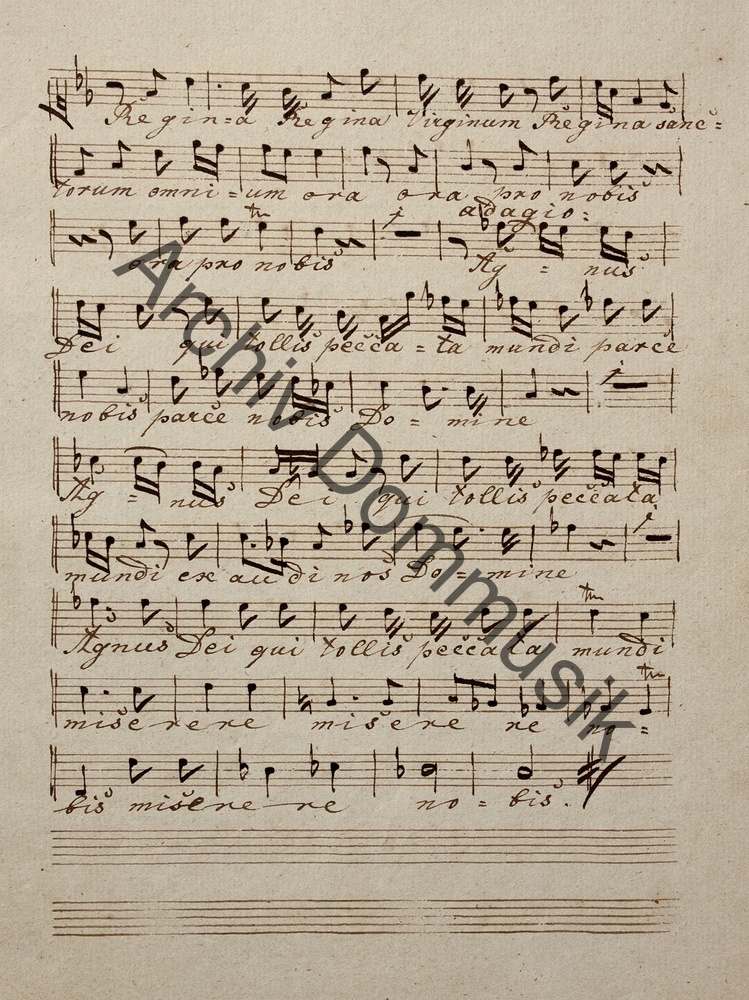 Regin=a Regina Virginum Regina sanc=
torum omni=um ora ora pro nobis
adagio:
ora pro nobis Ag = nus
Dei qui tollis pecca=ta mundi parce
nobis parce nobis Do=mine
Ag=nus Dei qui tollis peccata
mundi ex au di nos Do=mine
Agnus Dei qui tollis peccata mundi
mise rere misere re no=
bis misere re no=bis.
Archiv Dommusik